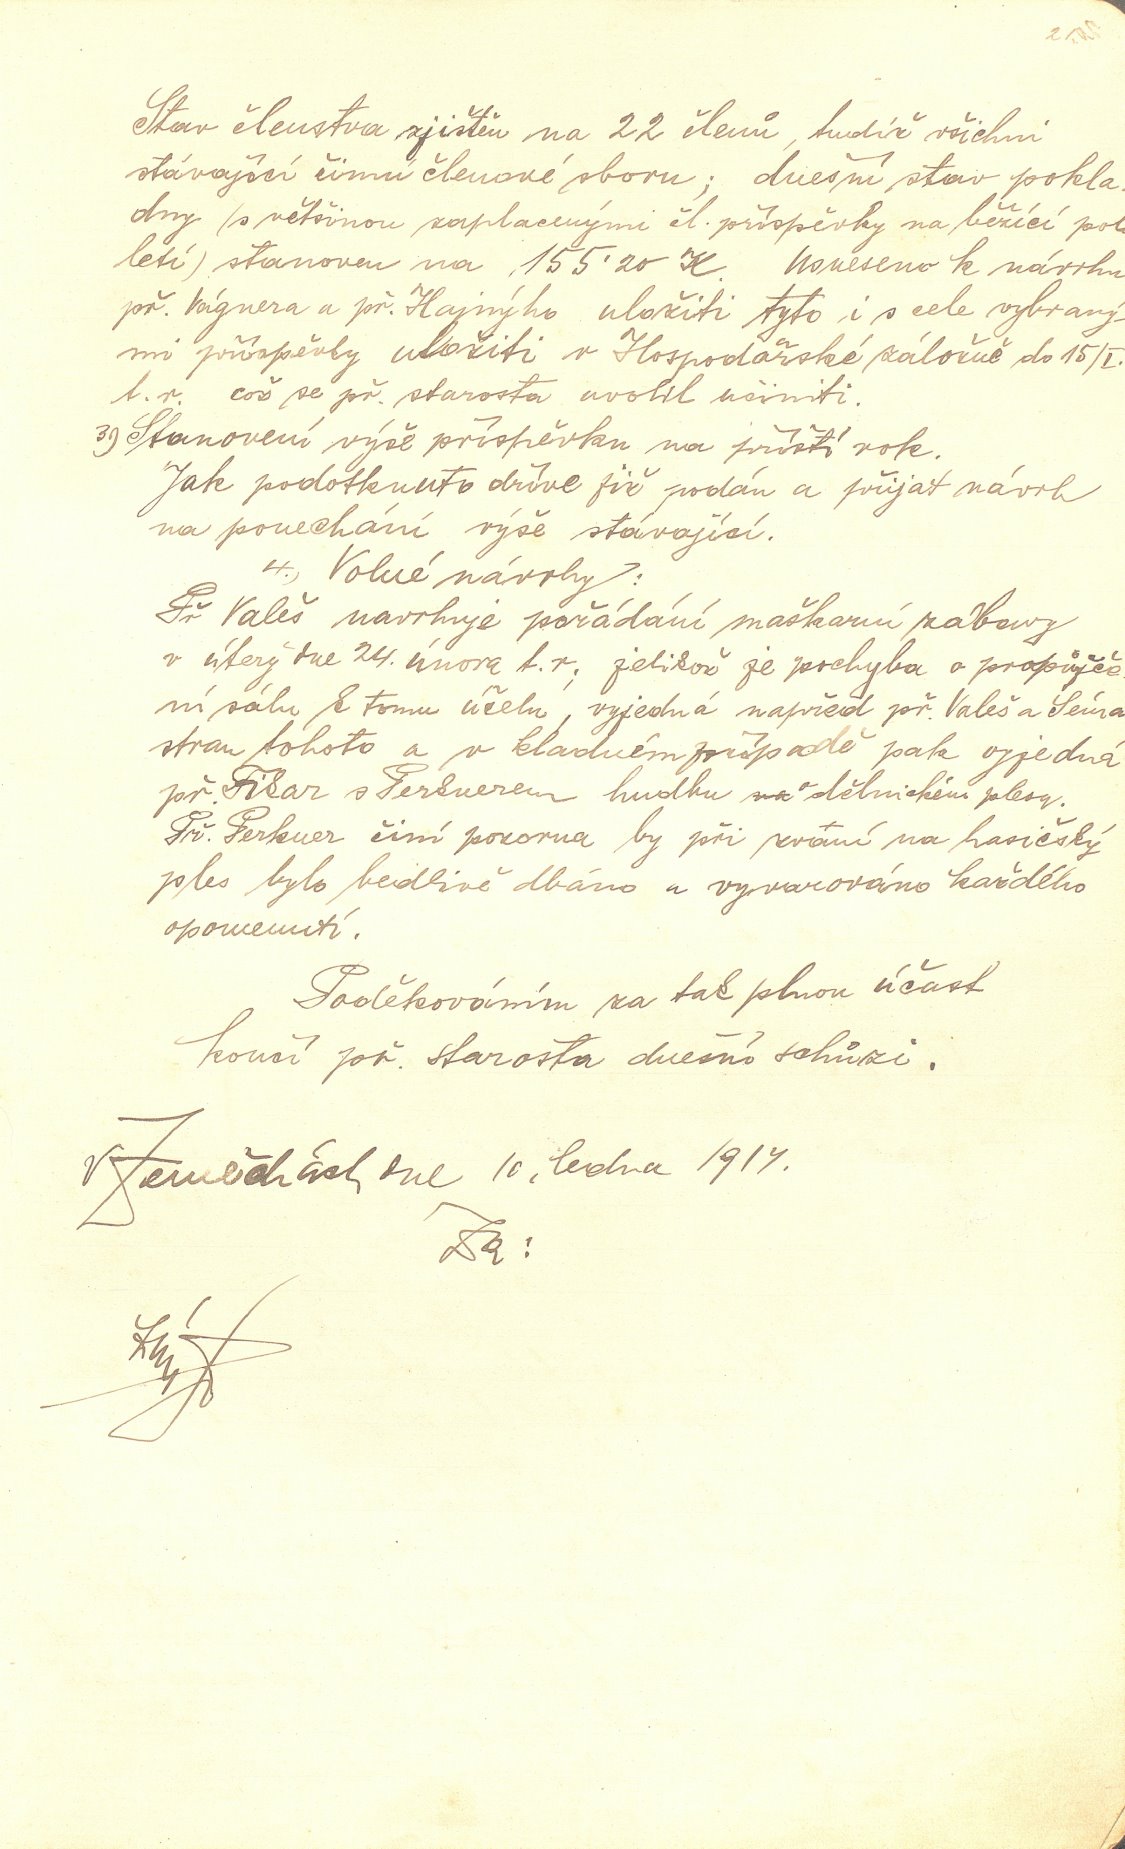 Stav členstva zjištěn na 22 členů, tudíž všichni
stávající činní členové sboru; dnešní stav pokla-
dny (s většinou zaplacenými čl. příspěvky na běžící polo
letí) stanoven na 155·20 K. Usneseno k návrhu
př. Vágnera a př. Hajného uložiti tyto i s cele vybraný-
mi příspěvky uložiti v Hospodářské záložně do 15/I.
t. r. což se př. starosta uvolil učiniti.
3) Stanovení výše příspěvku na příští rok.
Jak podotknuto dříve již podán a přijat návrh
na ponechání výše stávající.
4.) Volné návrhy:
Př Valeš navrhuje pořádání maškarní zábavy
v úterý dne 24. února t. r.; jelikož je pochyba o propůjče-
ní sálu k tomu účelu, vyjedná napřed př. Valeš a
stran tohoto a v kladném případě pak vyjedná
př. Fikar s Perknerem hudbu o dělnickém plesu.
Př. Perkner činí pozorna by při zvání na hasičský
ples bylo bedlivě dbáno a vyvarováno každého
opomenutí.
Poděkováním za tak plnou účast
končí př. starosta dnešní schůzi.
V Zeměchách, dne 10. ledna 1914.
Za: